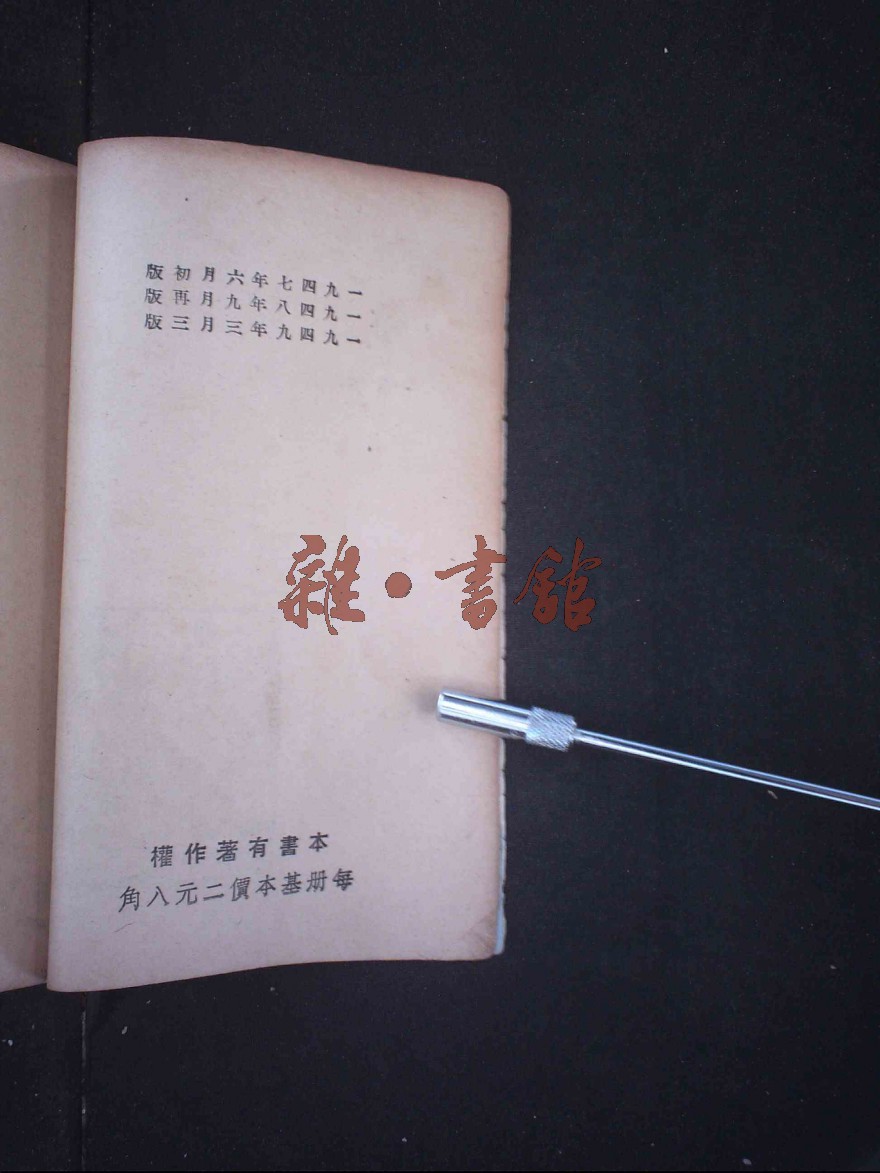 一九四七年六月初版
一九四八年九月再版
一九四九年三月三版
雜·書館
本書有著作權
每册基本價二元八角